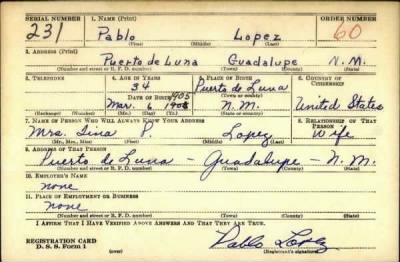 SERIAL NUMBER 1. NAME (Print) ORDER NUMBER
231 Pablo Lopez 60
(First) (Middle) (Last)
2. ADDRESS (Print)
Puerto de Luna Guadalupe N.M.
(Number and street or R. F. D. number) (Town) (County) (State)
3. TELEPHONE 4. AGE IN YEARS 5. PLACE OF BIRTH 6. COUNTRY OF CITIZENSHIP
34 Puerto de Luna
DATE OF BIRTH (Town or county)
1905
Mar. 6 N.M. United States
(Exchange) (Number) (Mo.) (Day) (Yr.) (State or country)
7. NAME OF PERSON WHO WILL ALWAYS KNOW YOUR ADDRESS 8. RELATIONSHIP OF THAT PERSON
Mrs. Tina P. Lopez Wife
(Mr., Mrs., Miss) (First) (Middle) (Last)
9. ADDRESS OF THAT PERSON
Puerto de Luna - Guadalupe - N.M.
(Number and street or R. F. D. number) (Town) (County) (State)
10. EMPLOYER'S NAME
none
11. PLACE OF EMPLOYMENT OR BUSINESS
none
(Number and street or R. F. D. number) (Town) (County) (State)
I AFFIRM THAT I HAVE VERIFIED ABOVE ANSWERS AND THAT THEY ARE TRUE.
REGISTRATION CARD
D. S. S. Form 1 (over) Pablo Lopez
(Registrant's signature)